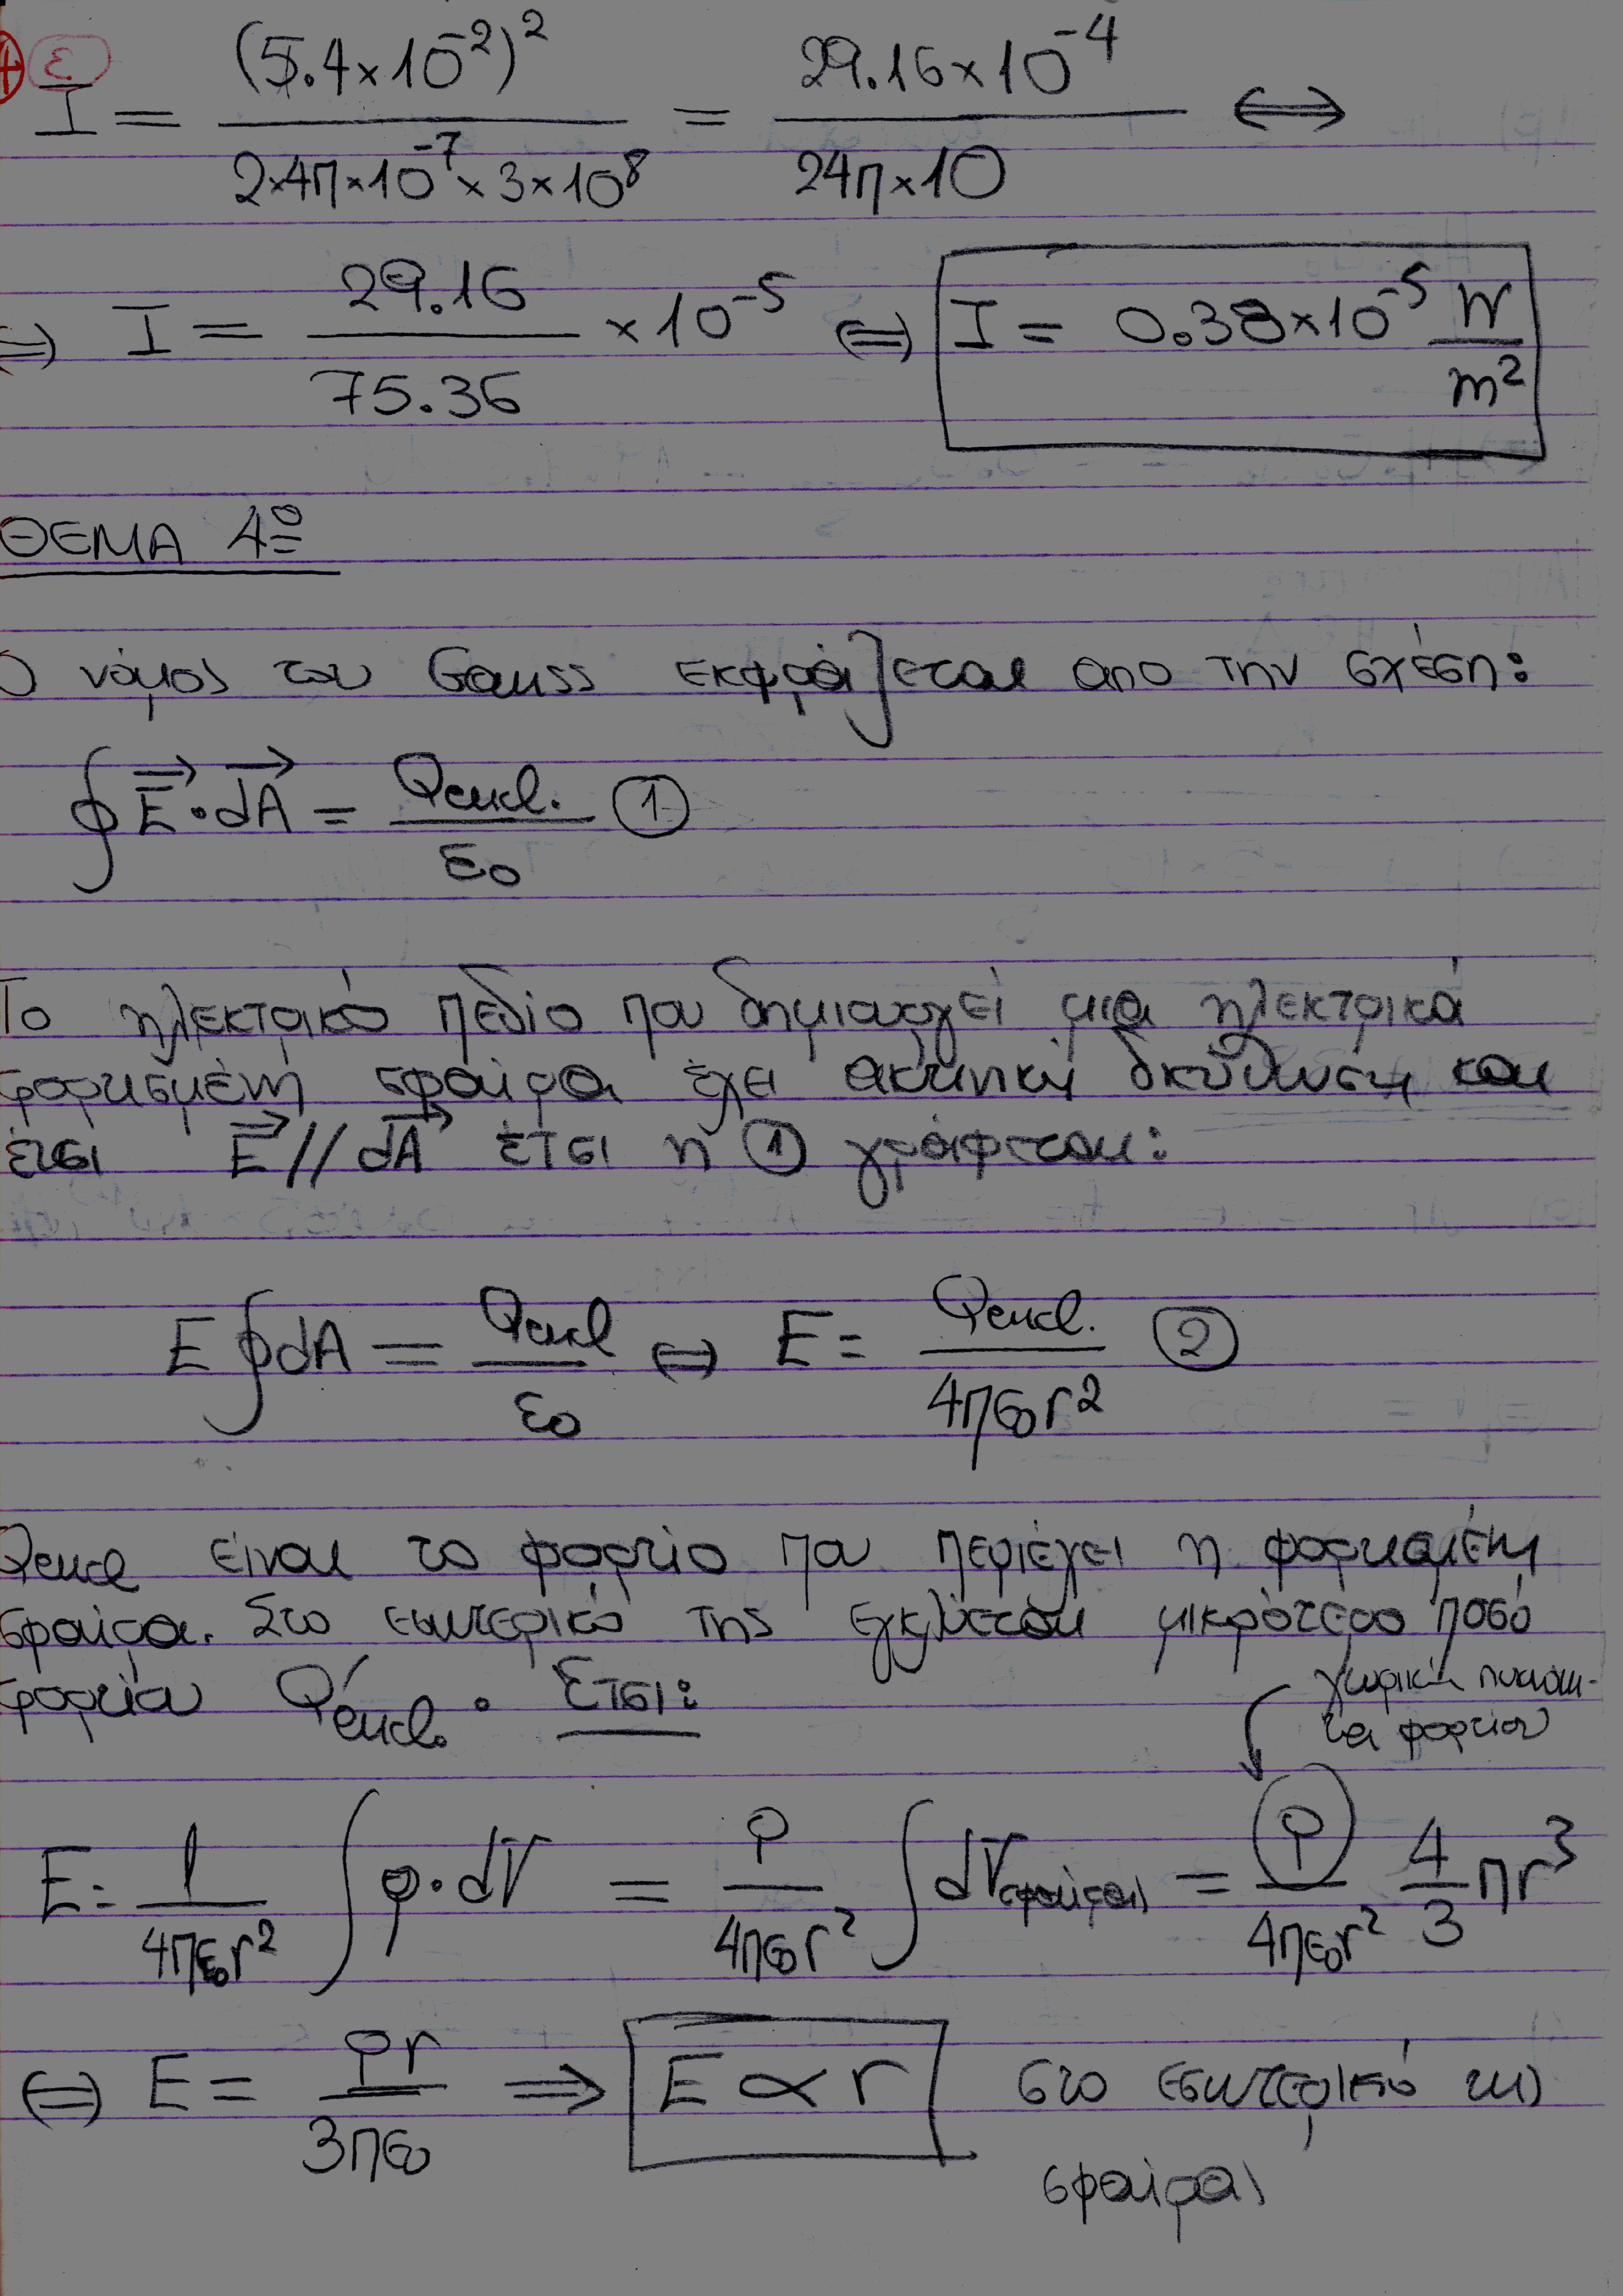 ε.
I = (5.4×10⁻²)² / 2×4π×10⁻⁷×3×10⁸ = 29.16×10⁻⁴ / 24π×10 ⟺
⟺ I = 29.16 / 75.36 ×10⁻⁵ ⟺ I = 0.38×10⁻⁵ W/m²
ΘΕΜΑ 4º
Ο νόμος του Gauss εκφράζεται απο την σχέση:
∮ E⃗·dA⃗ = Qencl. / ε₀ ①
Το ηλεκτρικό πεδίο που δημιουργεί μια ηλεκτρικά
φορτισμένη σφαίρα έχει ακτινική διεύθυνση και
έτσι E⃗ // dA⃗ έτσι η ① γράφεται:
E ∮ dA = Qencl / ε₀ ⟺ E = Qencl. / 4πε₀r² ②
Qencl είναι το φορτίο που περιέχει η φορτισμένη
σφαίρα. Στο εσωτερικό της εγκλείεται μικρότερο ποσό
φορτίου Q'encl. . Έτσι:
χωρική πυκνότη-
τα φορτίου
E = 1 / 4πε₀r² ∫ ρ·dV = ρ / 4πε₀r² ∫ dVσφαίρας = ρ / 4πε₀r² 4/3 πr³
⟺ E = ρr / 3πε₀ ⟹ E ∝ r στο εσωτερικό της
σφαίρας